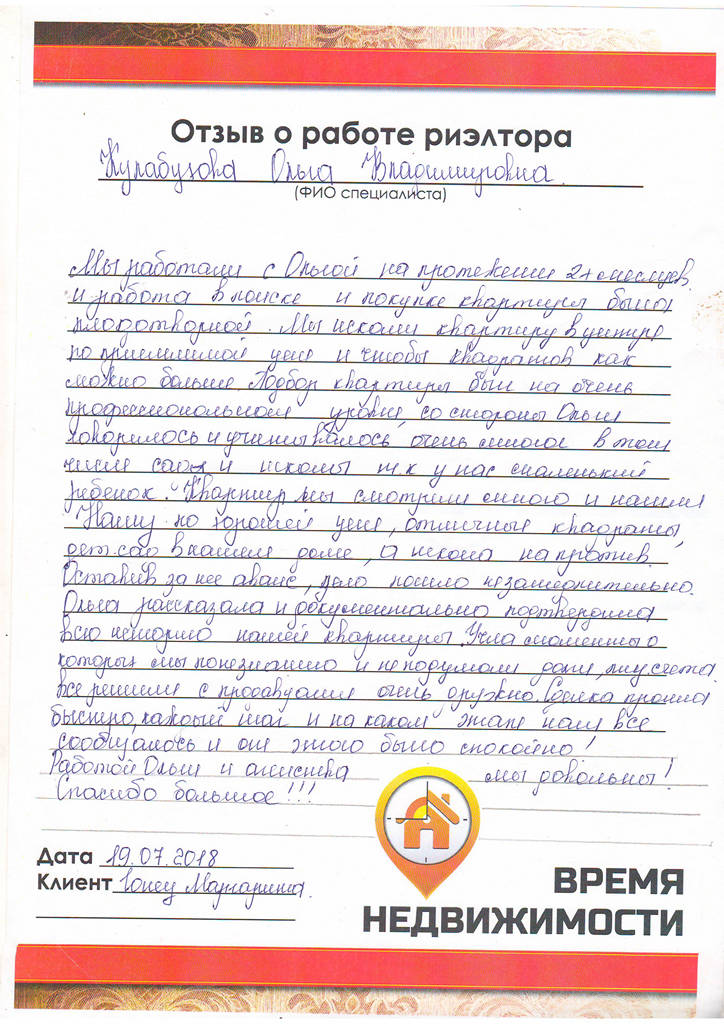 Отзыв о работе риэлтора
Кулабузова Ольга Владимировна
(ФИО специалиста)
Мы работали с Ольгой на протяжении 2х месяцев
и работа в поиске и покупке квартиры была
плодотворной. Мы искали квартиру в центре
по приемлимой цене и чтобы квадратов как
можно больше. Подбор квартиры был на очень
профессиональном уровне, со стороны Ольги
говорилось и учитывалось очень многое в том
числе садик и школы т.к у нас маленький
ребенок. Квартир мы смотрели много и нашли
Нашу по хорошей цене, отличные квадраты,
дет.сад в нашем доме, а школа на против.
Оставив за нее аванс, дело пошло незамедлительно.
Ольга рассказала и документально подтвердила
всю историю нашей квартиры. Учла моменты о
которых мы по незнанию и не подумали даже, лиц.счета.
все решили с продавцами очень дружно. Сделка прошла
быстро, каждый шаг и на каком этапе нам все
сообщалось и от этого было спокойно!
Работой Ольги и агенства мы довольны!
Спасибо большое!!!
Дата 19.07.2018
Клиент Маргарита.
ВРЕМЯ
НЕДВИЖИМОСТИ